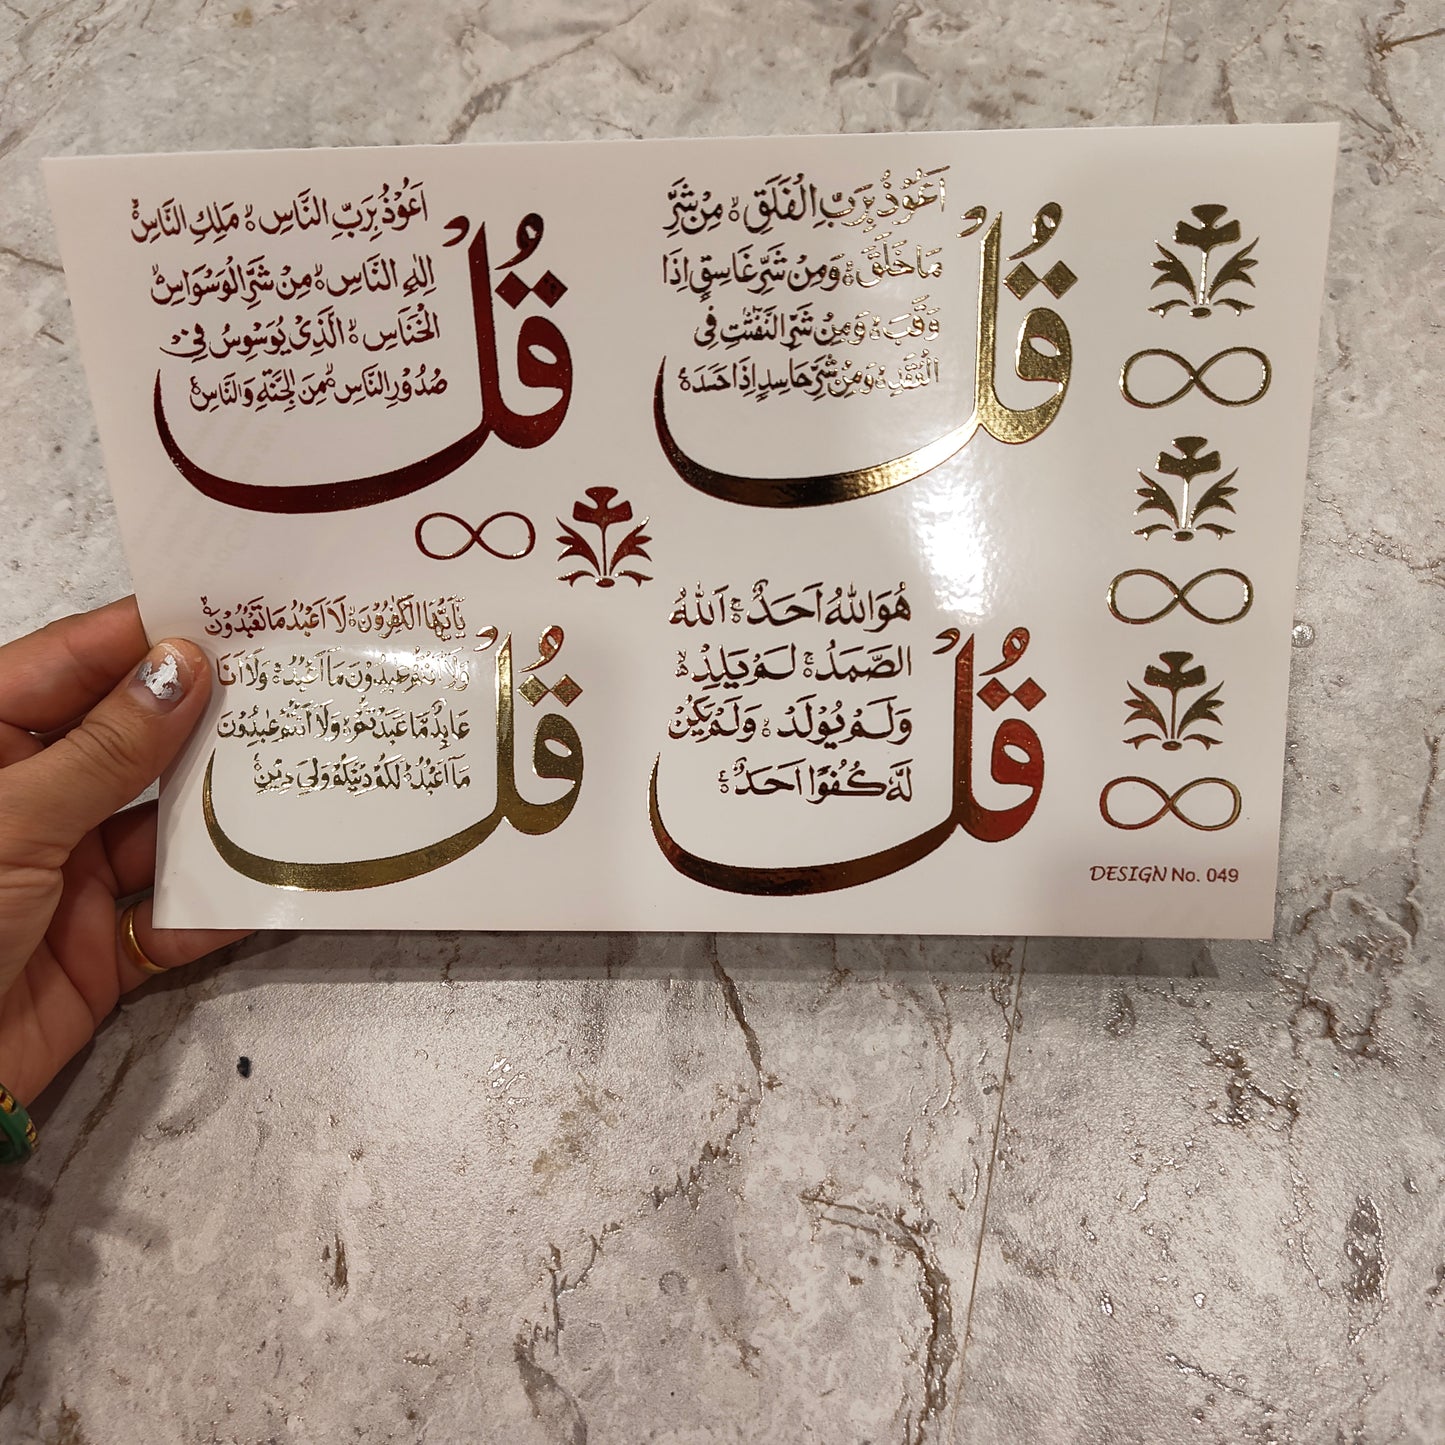 قُلْ
اَعُوْذُ بِرَبِّ الْفَلَقِ ۙ مِنْ شَرِّ
مَا خَلَقَ ۙ وَمِنْ شَرِّ غَاسِقٍ اِذَا
وَقَبَ ۙ وَمِنْ شَرِّ النَّفّٰثٰتِ فِی
الْعُقَدِ ۙ وَمِنْ شَرِّ حَاسِدٍ اِذَا حَسَدَ
قُلْ
اَعُوْذُ بِرَبِّ النَّاسِ ۙ مَلِكِ النَّاسِ ۙ
اِلٰهِ النَّاسِ ۙ مِنْ شَرِّ الْوَسْوَاسِ
الْخَنَّاسِ ۙ الَّذِیْ یُوَسْوِسُ فِیْ
صُدُوْرِ النَّاسِ ۙ مِنَ الْجِنَّةِ وَالنَّاسِ
قُلْ
هُوَ اللّٰهُ اَحَدٌ ۚ اَللّٰهُ
الصَّمَدُ ۚ لَمْ یَلِدْ ۙ
وَلَمْ یُوْلَدْ ۙ وَلَمْ یَكُنْ
لَّهٗ كُفُوًا اَحَدٌ
قُلْ
یٰۤاَیُّهَا الْكٰفِرُوْنَ ۙ لَاۤ اَعْبُدُ مَا تَعْبُدُوْنَ ۙ
وَلَاۤ اَنْتُمْ عٰبِدُوْنَ مَاۤ اَعْبُدُ ۚ وَلَاۤ اَنَا
عَابِدٌ مَّا عَبَدْتُّمْ ۙ وَلَاۤ اَنْتُمْ عٰبِدُوْنَ
مَاۤ اَعْبُدُ ؕ لَكُمْ دِیْنُكُمْ وَلِیَ دِیْنِ
DESIGN No. 049